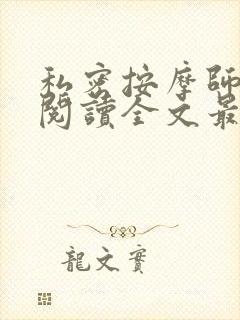 私密按摩師
閱讀全文最
龍文實